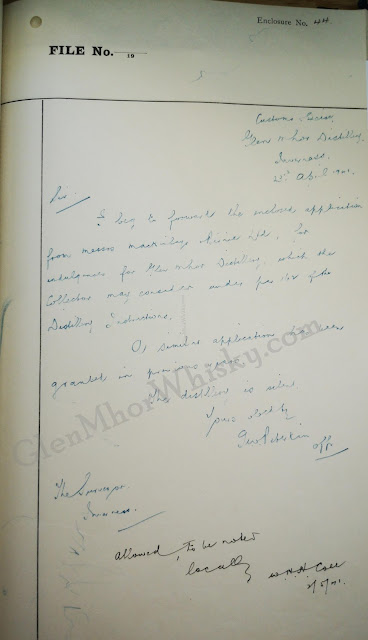 Enclosure No. 44.
FILE No. 19
Customs & Excise
Glen Mhor Distillery
Inverness.
April 1941.
Sir
I beg to forward the enclosed application
from Messrs Mackinlays & Birnie Ltd. for
indulgences for Glen Mhor Distillery, which the
Collector may consider under par of the
Distillery Instructions.
A similar application has been
granted in previous years.
The distillery is silent
Yours obedtly
Offr
The Surveyor.
Inverness.
allowed, to be noted
locally
GlenMhorWhisky.com